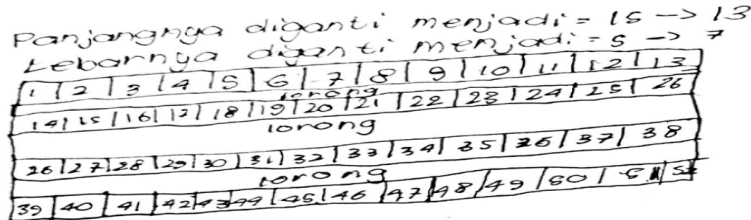 Panjangnya diganti menjadi = 15 -> 13
Lebarnya diganti menjadi = 5 -> 7
1 | 2 | 3 | 4 | 5 | 6 | 7 | 8 | 9 | 10 | 11 | 12 | 13
lorong
14 | 15 | 16 | 17 | 18 | 19 | 20 | 21 | 22 | 23 | 24 | 25 | 26
lorong
26 | 27 | 28 | 29 | 30 | 31 | 32 | 33 | 34 | 35 | 36 | 37 | 38
lorong
39 | 40 | 41 | 42 | 43 | 44 | 45 | 46 | 47 | 48 | 49 | 50 |